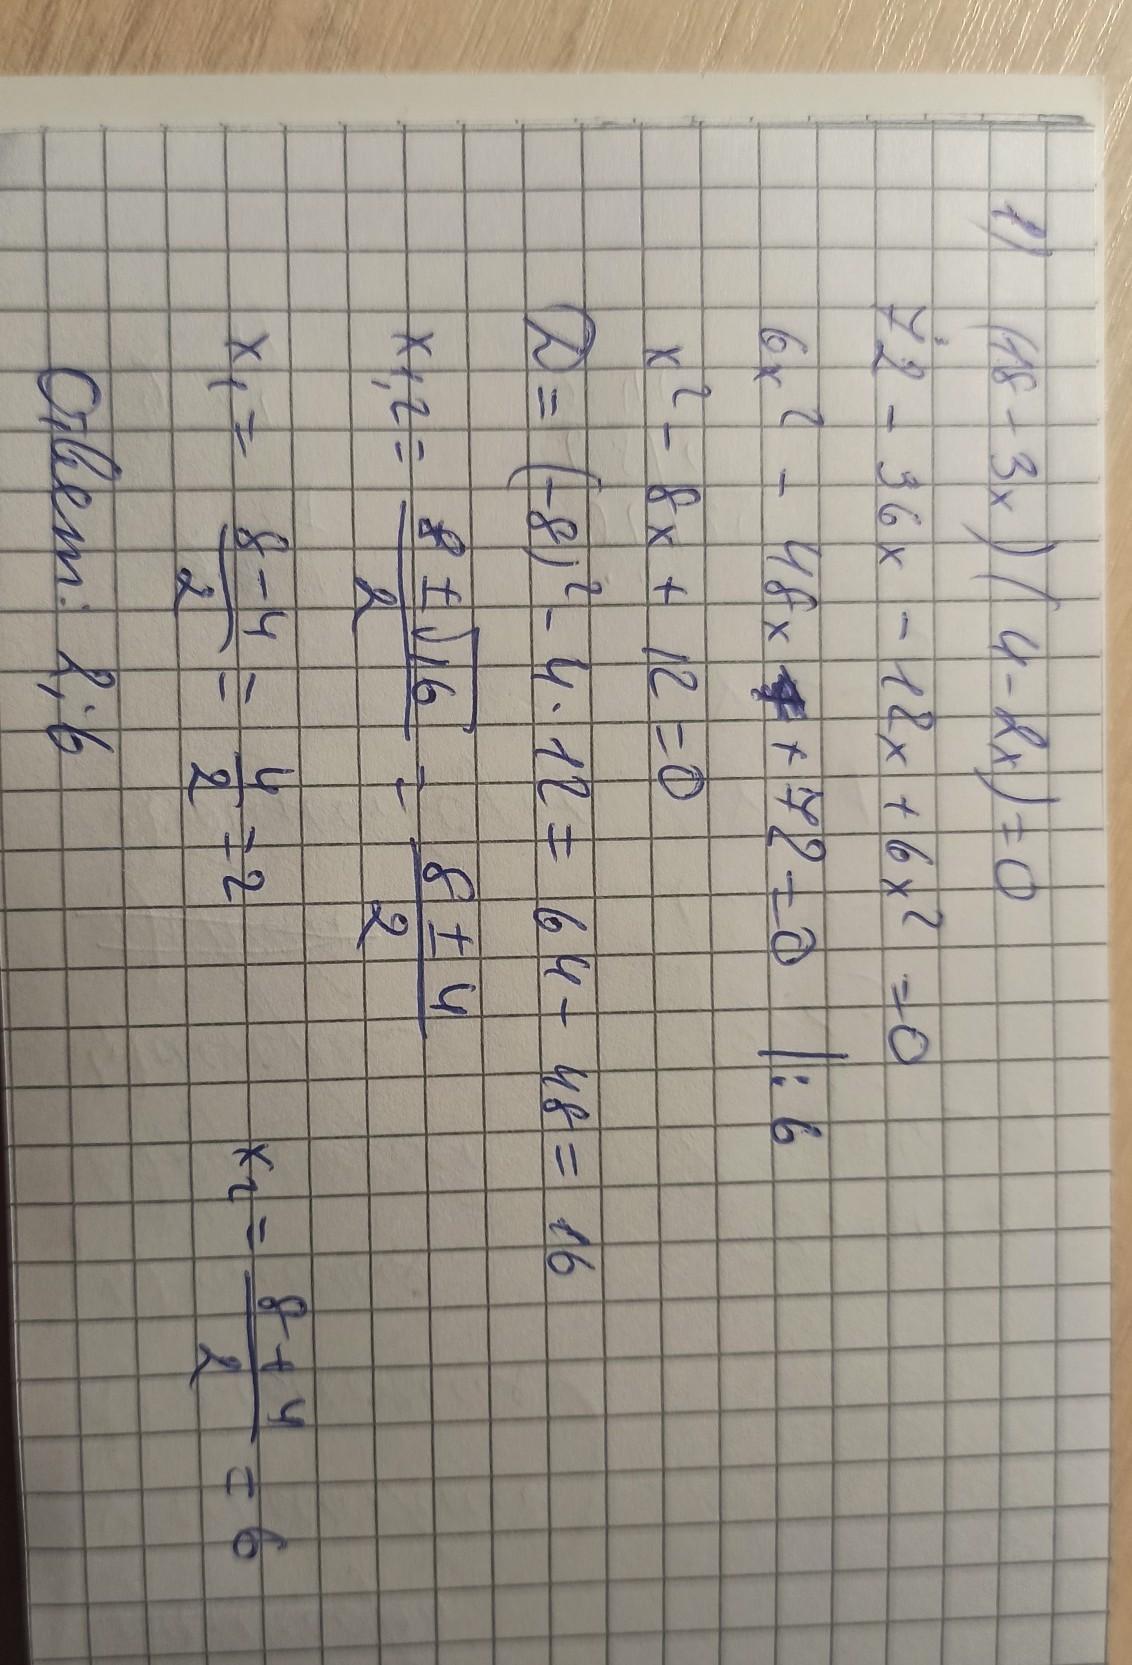 1) (18 - 3x)(4 - 2x) = 0
72 - 36x - 12x + 6x² = 0
6x² - 48x + 72 = 0 |: 6
x² - 8x + 12 = 0
D = (-8)² - 4 · 12 = 64 - 48 = 16
x₁,₂ = (8 ± √16)/2 = (8 ± 4)/2
x₁ = (8 - 4)/2 = 4/2 = 2 x₂ = (8 + 4)/2 = 6
Ответ: 2; 6